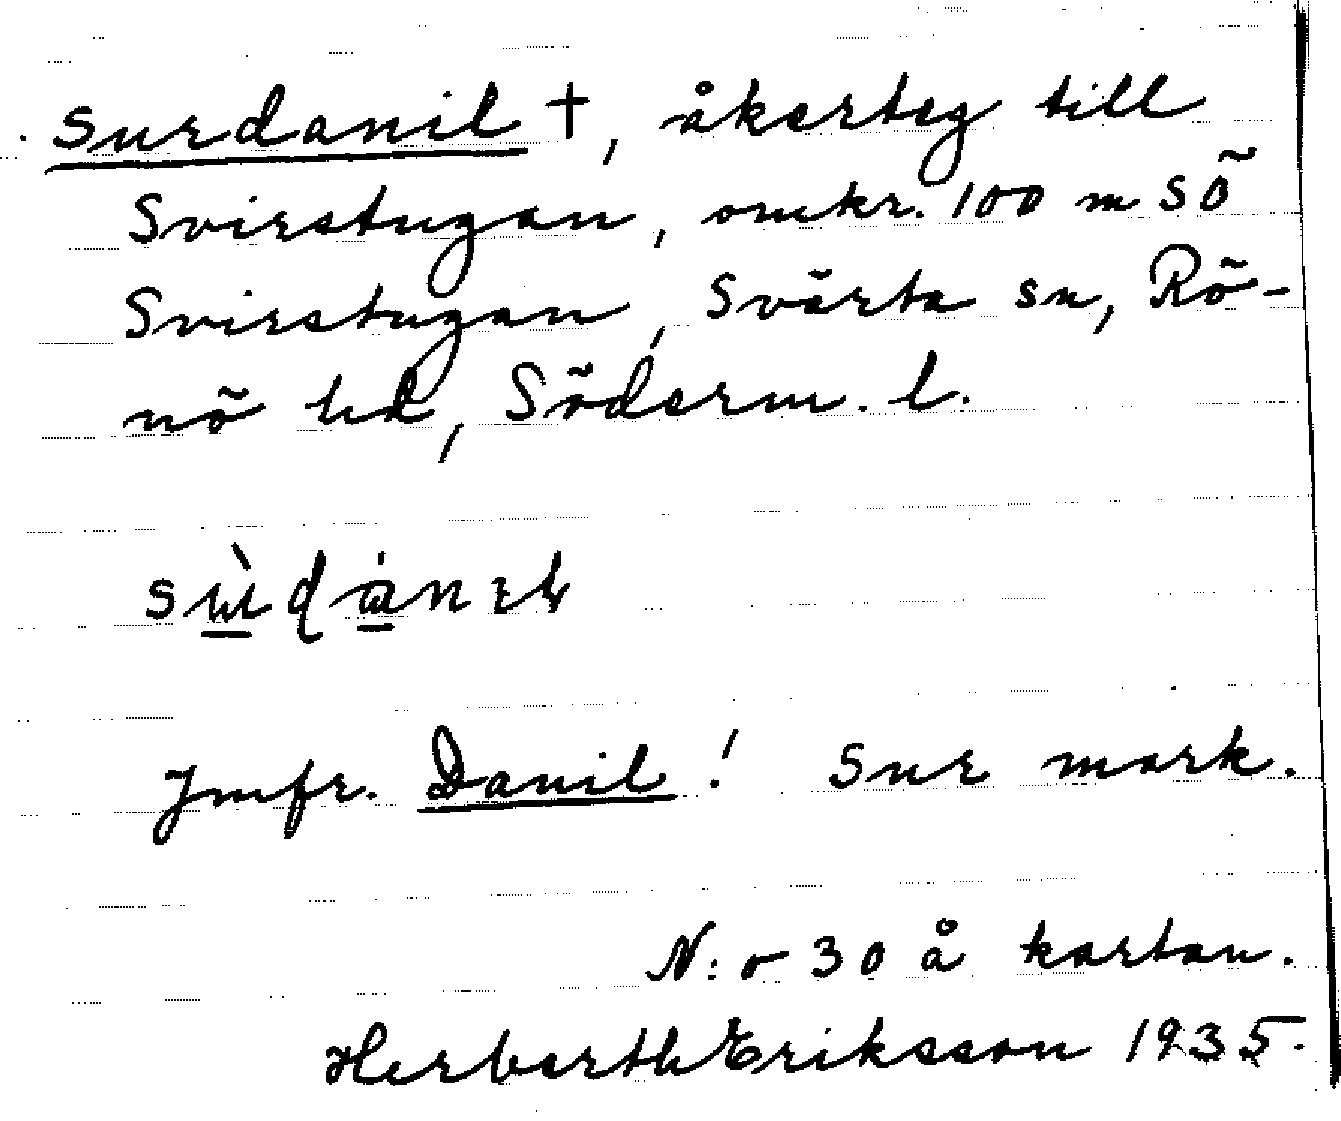 Surdanil †, åkerteg till
Svirstugan, omkr. 100 m SÖ
Svirstugan, Svärta sn, Rö-
nö hd, Söderm. l.
Jmfr. Danil! Sur mark.
N:o 30 å kartan.
Herberth Eriksson 1935.